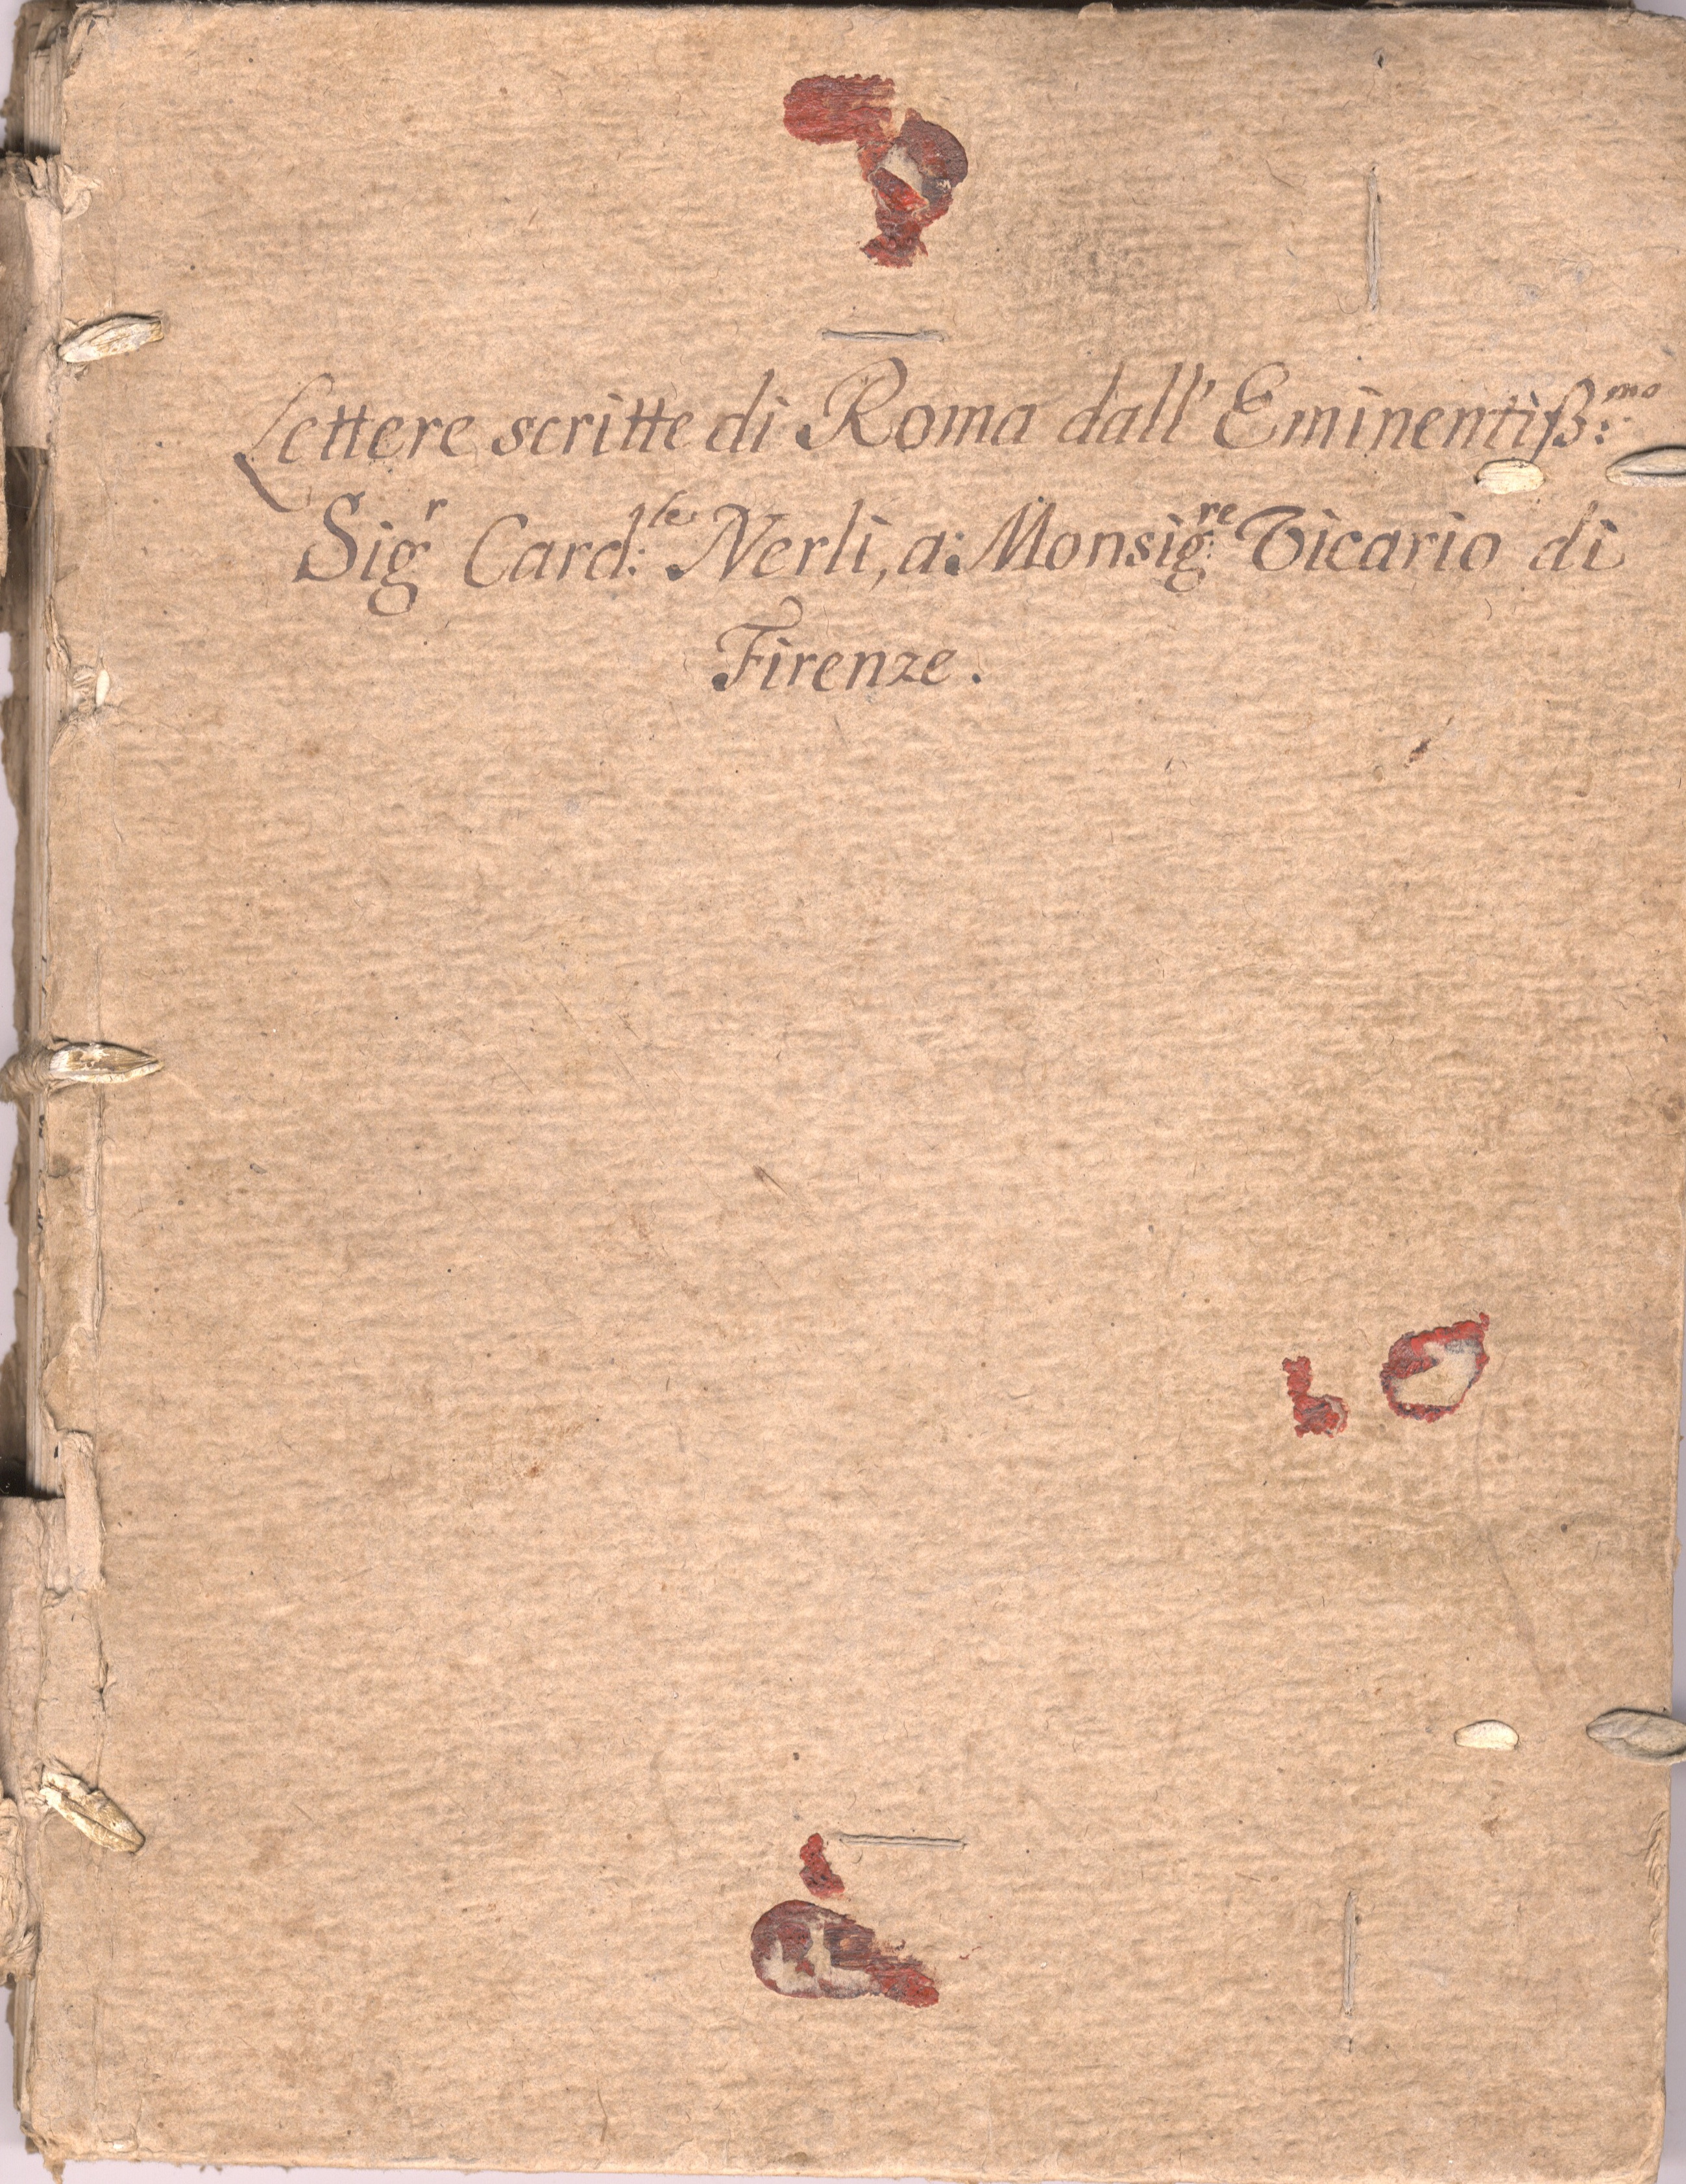 Lettere scritte di Roma dall' Eminentiß:mo
Sigr Card:le Nerli, a: Monsig:re Vicario di
Firenze.